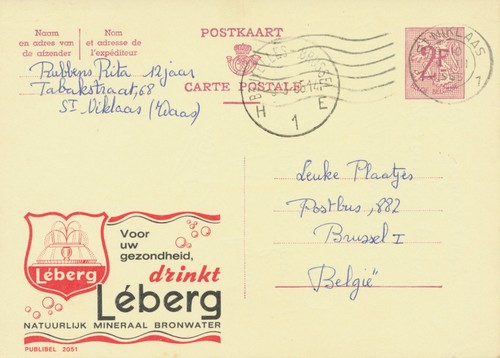 Naam
en adres van
de afzender
Nom
et adresse de
l'expéditeur
POSTKAART
CARTE POSTALE
Rubbens Rita 12 jaar
Tabakstraat, 68
St Niklaas (Waas)
2F
BELGIE
NIKLAAS
1
H 1 E
Leuke Plaatjes
Postbus, 882
Brussel I
België
Voor
uw
gezondheid,
drinkt
Léberg
Léberg
NATUURLIJK MINERAAL BRONWATER
PUBLIBEL 2051